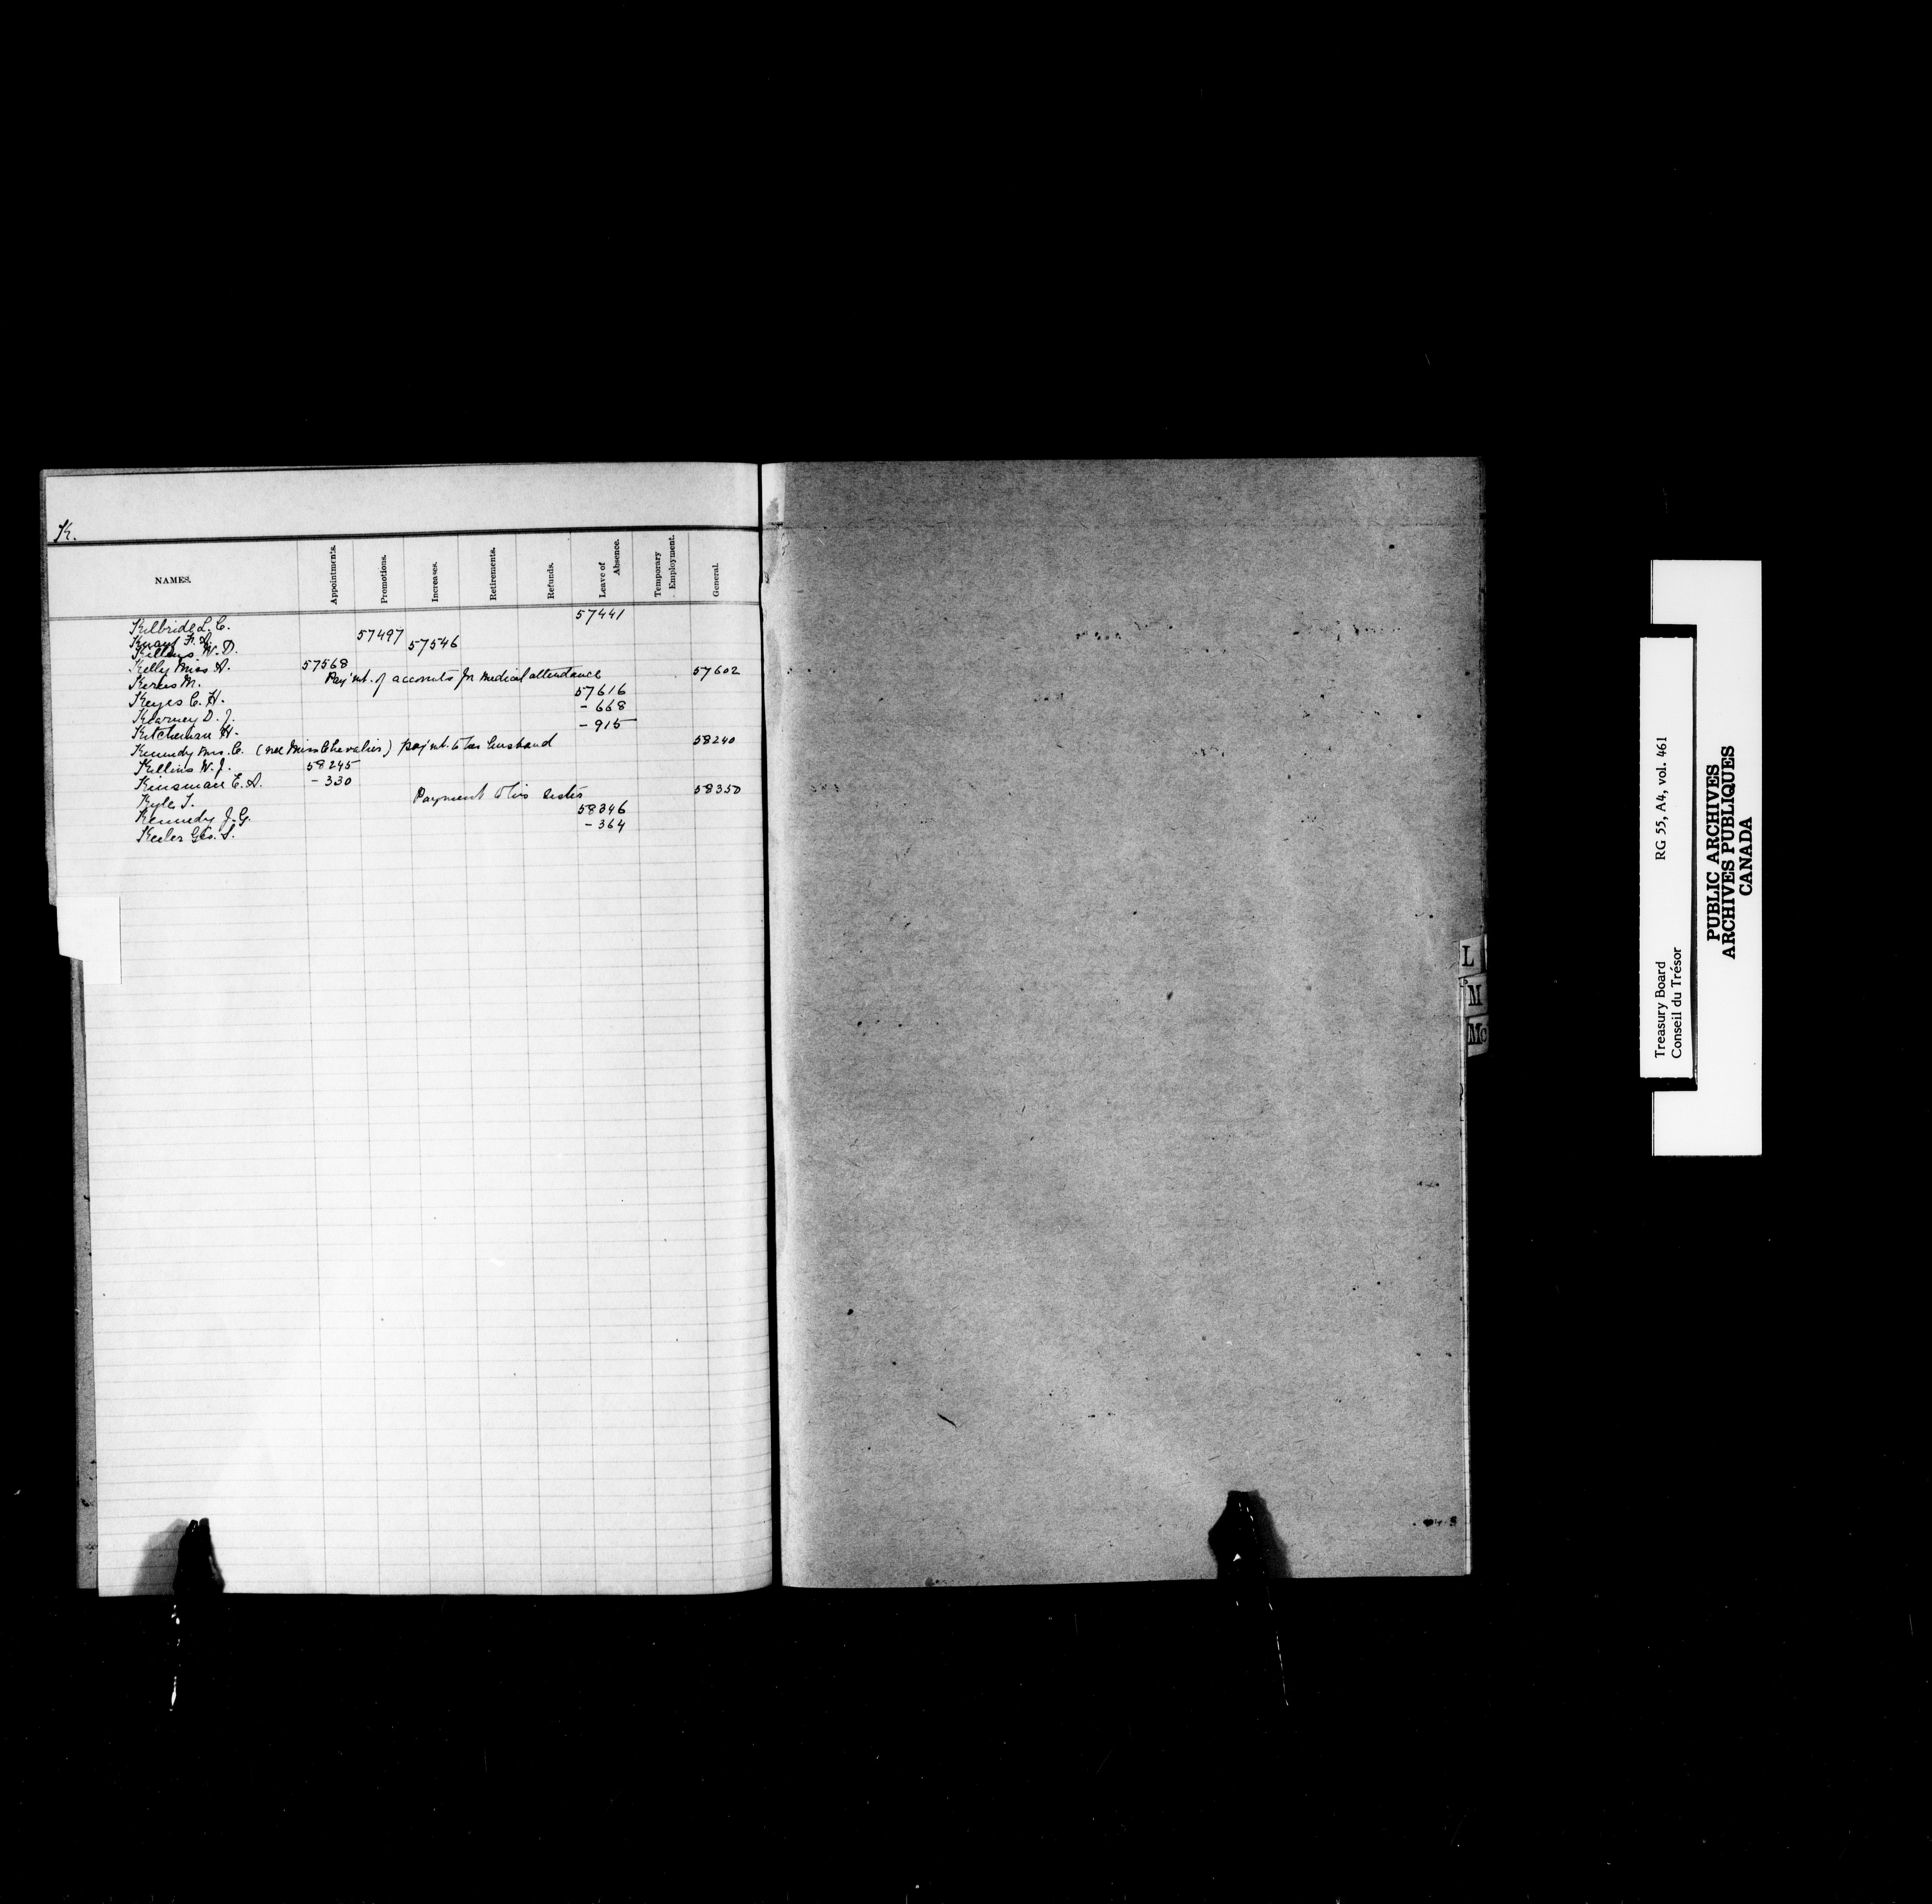 K.
NAMES. Appointments. Promotions. Increases. Retirements. Refunds. Leave of Absence. Temporary Employment. General.
Kilbride L. C. 57441
Knauf F. A. 57497
Killens W. D. 57546
Kelly Miss A. 57568
M. Paym't. of accounts for medical attendance 57602
Keyes C. H. 57616
Kearney D. J. - 668
H. - 915
Kennedy Mrs. C. (nee Miss Chevalier) paym't. to her husband 58240
Killins W. J. 58245
Kinsman E. A. - 330
Kyle T. Payment to his sister 58350
Kennedy J. G. 58346
Keeler Geo. S. - 364
L
M
Mc
Treasury Board RG 55, A4, vol. 461
Conseil du Trésor
PUBLIC ARCHIVES
ARCHIVES PUBLIQUES
CANADA